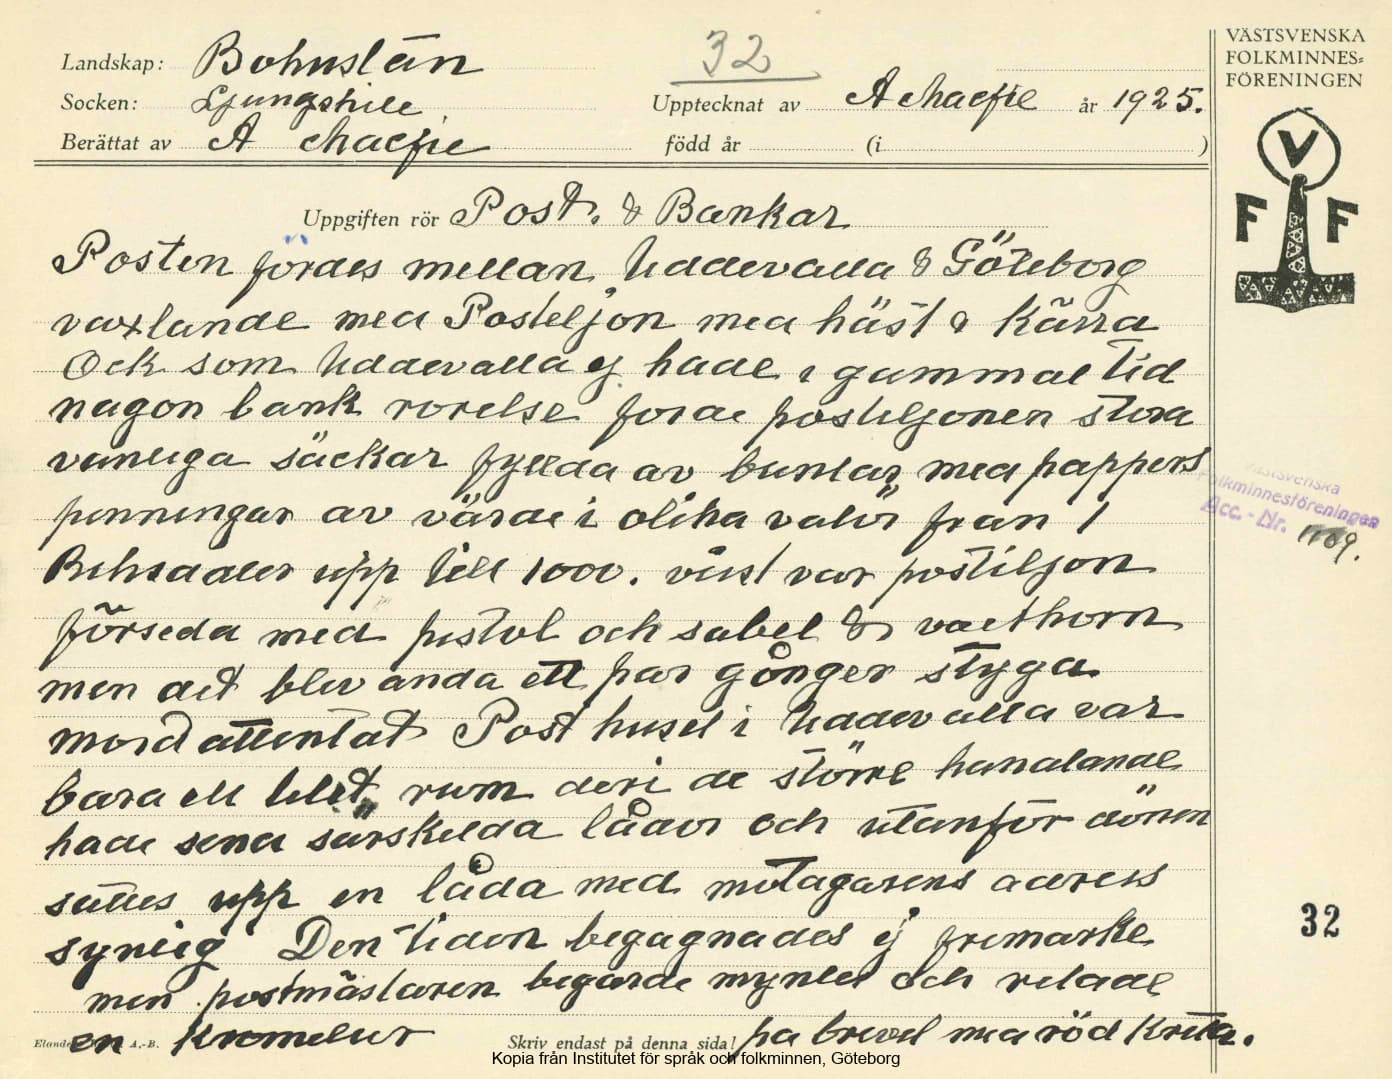 VÄSTSVENSKA
FOLKMINNES=
FÖRENINGEN
Landskap: Bohuslän
32
Socken: Ljungskile
Upptecknat av A Macfie år 1925.
Berättat av A Macfie
född år (i )
V
F F
Uppgiften rör Post. & Bankar
Posten fördes mellan Uddevalla & Göteborg
vaxlande med Posteljon med häst & Kärra
Ock som Uddevalla ej hade i gammal tid
nagon bank rorelse forde posteljonen stora
vanliga säckar fyllda av buntar med pappers
penningar av värde i olika valör fran 1
Rihsdaler upp till 1000. visst var postiljon
förseda med pistol och sabel & valthorn
men det blev anda ett par gånger styga
mord attentat Post huset i Uddevalla var
bara ett litet rum deri de större handlande
hade sena särskilda lådor och utanför dörren
sattes upp en låda med motagarens adress
synlig Den tiden begagnades ej fremarke
men postmästaren begarde myntet och ritade
en Kromelur på brevet med röd Krita.
Västsvenska
Folkminnesföreningen
Acc.-Nr. 1109.
32
A.-B.
Skriv endast på denna sida!
Kopia från Institutet för språk och folkminnen, Göteborg